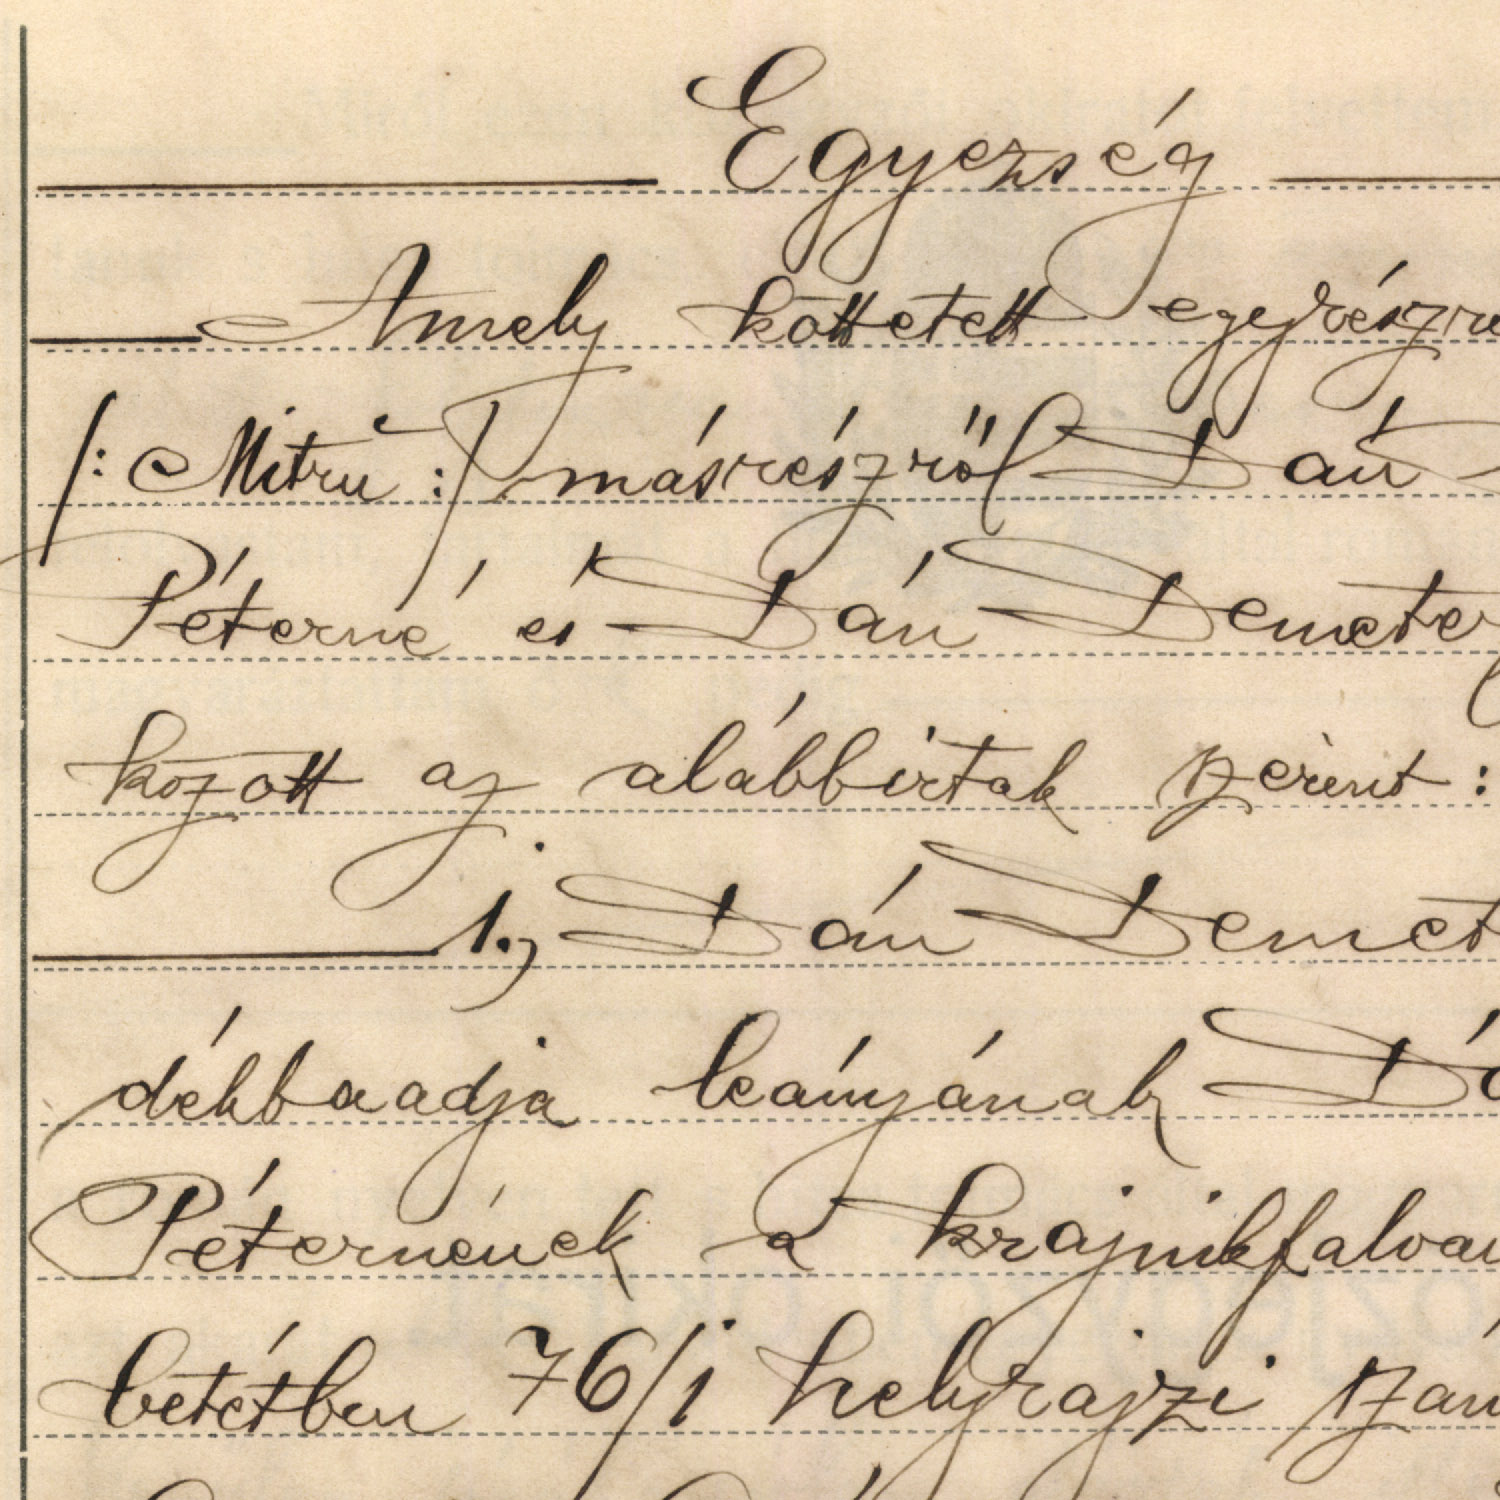 Egyezség
Amely köttetett egyrészre
/: Mitru :/ másrészről Dán
Péterné és Dán Demeter
között az alábbirtak szerint :
1.) Dán Demet
dékbaadja leányának Dá
Péternének a krajnikfalvai
betétben 76/1 helyrajzi szám